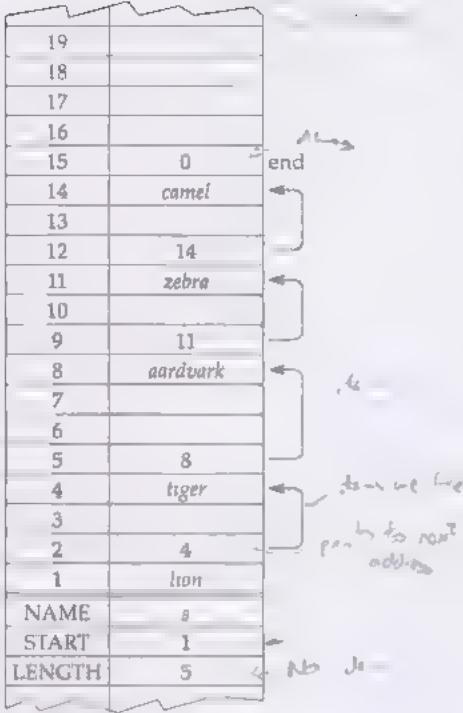 19
18
17
16
15 0 end
14 camel
13
12 14
11 zebra
10
9 11
8 aardvark
7
6
5 8
4 tiger
3
2 4
next
1 lion
NAME s
START 1
LENGTH 5 No